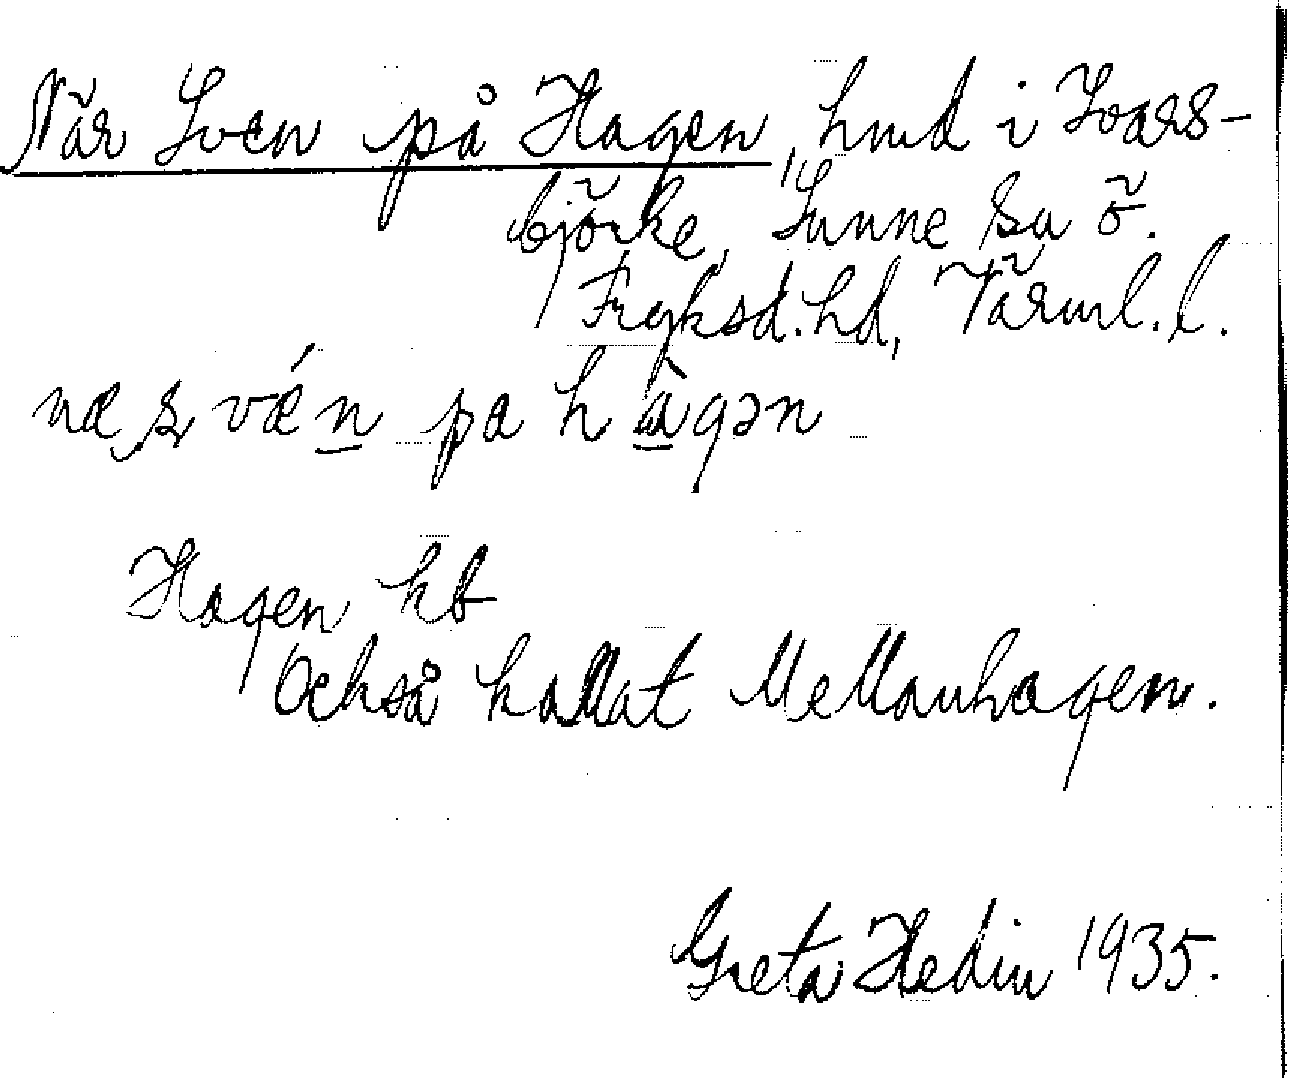 När Sven på Hagen, hmd i Ivars-
björke, Sunne sn ö.
Fryksd. hd, Värml. l.
næ ʂ vǽn pa hàgən
Hagen kb
Också kallat Mellanhagen.
Greta Hedin 1935.